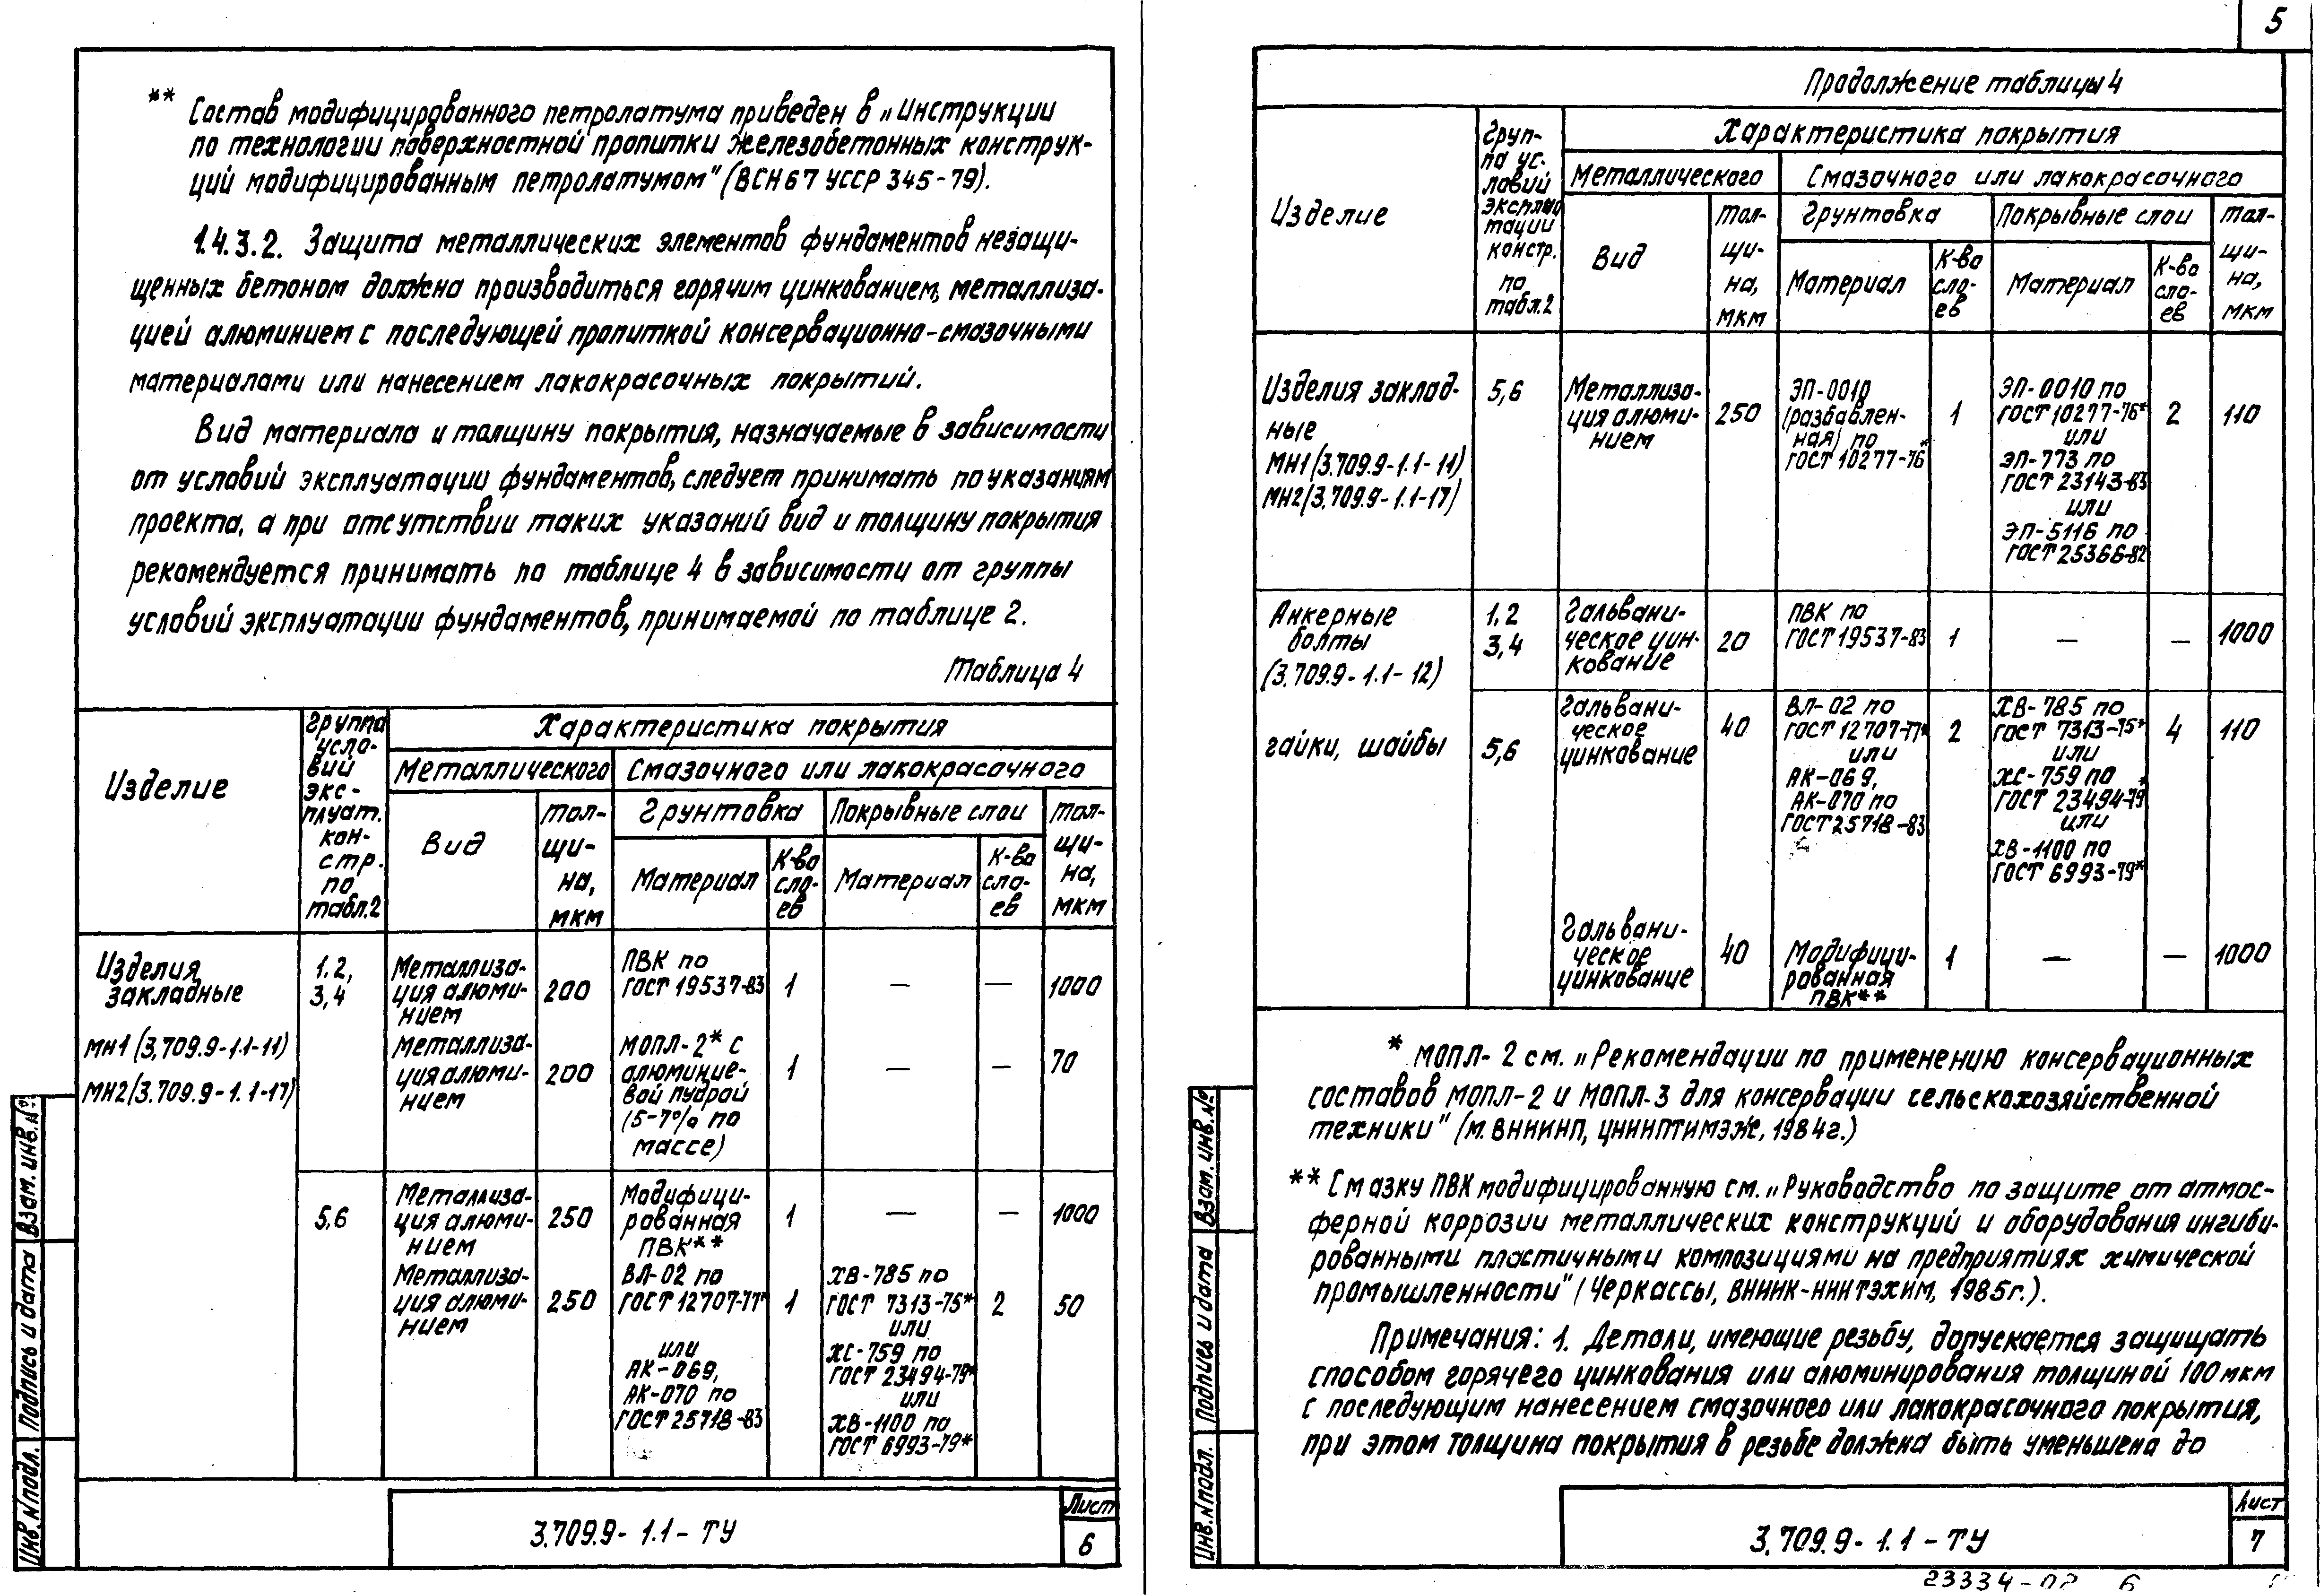 ** Состав модифицированного петролатума приведен в „Инструкции
по технологии поверхностной пропитки железобетонных конструк-
ций модифицированным петролатумом" (ВСН 67 УССР 345-79).
1.4.3.2. Защита металлических элементов фундаментов незащи-
щенных бетоном должна производиться горячим цинкованием, металлиза-
цией алюминием с последующей пропиткой консервационно-смазочными
материалами или нанесением лакокрасочных покрытий.
Вид материала и толщину покрытия, назначаемые в зависимости
от условий эксплуатации фундаментов, следует принимать по указаниям
проекта, а при отсутствии таких указаний вид и толщину покрытия
рекомендуется принимать по таблице 4 в зависимости от группы
условий эксплуатации фундаментов, принимаемой по таблице 2.
Таблица 4
Изделие
Группа
усло-
вий
экс-
плуат.
кон-
стр.
по
табл.2
Характеристика покрытия
Металлического
Смазочного или лакокрасочного
Вид
Тол-
щи-
на,
мкм
Грунтовка
Покрывные слои
Тол-
щи-
на,
мкм
Материал
К-во
сло-
ев
Материал
К-во
сло-
ев
Изделия
закладные
МН1 (3.709.9-1.1-11)
МН2 (3.709.9-1.1-17)
1.2,
3,4
Металлиза-
ция алюми-
нием
200
ПВК по
ГОСТ 19537-83
1
—
—
1000
Металлиза-
ция алюми-
нием
200
МОПЛ-2* с
алюминие-
вой пудрой
(5-7% по
массе)
1
—
—
70
5,6
Металлиза-
ция алюми-
нием
250
Модифици-
рованная
ПВК**
1
—
—
1000
Металлиза-
ция алюми-
нием
250
ВЛ-02 по
ГОСТ 12707-77*
или
АК-069,
АК-070 по
ГОСТ 25718-83
1
ХВ-785 по
ГОСТ 7313-75*
или
ХС-759 по
ГОСТ 23494-79*
или
ХВ-1100 по
ГОСТ 6993-79*
2
50
Инв.№подл.
Подпись и дата
Взам.инв.№
3.709.9-1.1-ТУ
Лист
6
5
Продолжение таблицы 4
Изделие
Груп-
па ус-
ловий
эксплуа
тации
констр.
по
табл.2
Характеристика покрытия
Металлического
Смазочного или лакокрасочного
Вид
Тол-
щи-
на,
мкм
Грунтовка
Покрывные слои
Тол-
щи-
на,
мкм
Материал
К-во
сло-
ев
Материал
К-во
сло-
ев
Изделия заклад-
ные
МН1 (3.709.9-1.1-11)
МН2 (3.709.9-1.1-17)
5,6
Металлиза-
ция алюми-
нием
250
ЭП-0010
(разбавлен-
ная) по
ГОСТ 10277-76*
1
ЭП-0010 по
ГОСТ 10277-76*
или
ЭП-773 по
ГОСТ 23143-83
или
ЭП-5116 по
ГОСТ 25366-82
2
110
Анкерные
болты
(3.709.9-1.1-12)
гайки, шайбы
1,2
3,4
Гальвани-
ческое цин-
кование
20
ПВК по
ГОСТ 19537-83
1
—
—
1000
5,6
Гальвани-
ческое
цинкование
40
ВЛ-02 по
ГОСТ 12707-77*
или
АК-069,
АК-070 по
ГОСТ 25718-83
2
ХВ-785 по
ГОСТ 7313-75*
или
ХС-759 по
ГОСТ 23494-79*
или
ХВ-1100 по
ГОСТ 6993-79*
4
110
Гальвани-
ческое
цинкование
40
Модифици-
рованная
ПВК**
1
—
—
1000
* МОПЛ-2 см. „Рекомендации по применению консервационных
составов МОПЛ-2 и МОПЛ-3 для консервации сельскохозяйственной
техники" (м. ВНИИНП, ЦНИИПТИМЭЖ, 1984г.)
** Смазку ПВК модифицированную см. „Руководство по защите от атмос-
ферной коррозии металлических конструкций и оборудования ингиби-
рованными пластичными композициями на предприятиях химической
промышленности" (Черкассы, ВНИИК-НИИТЭХИМ, 1985г.).
Примечания: 1. Детали, имеющие резьбу, допускается защищать
способом горячего цинкования или алюминирования толщиной 100 мкм
с последующим нанесением смазочного или лакокрасочного покрытия,
при этом толщина покрытия в резьбе должна быть уменьшена до
Инв.№подл.
Подпись и дата
Взам.инв.№
3.709.9-1.1-ТУ
Лист
7
23334-02 6